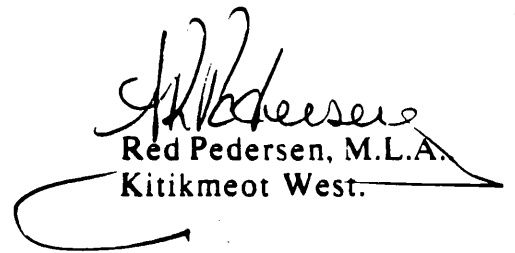 Red Pedersen, M.L.A.
Kitikmeot West.